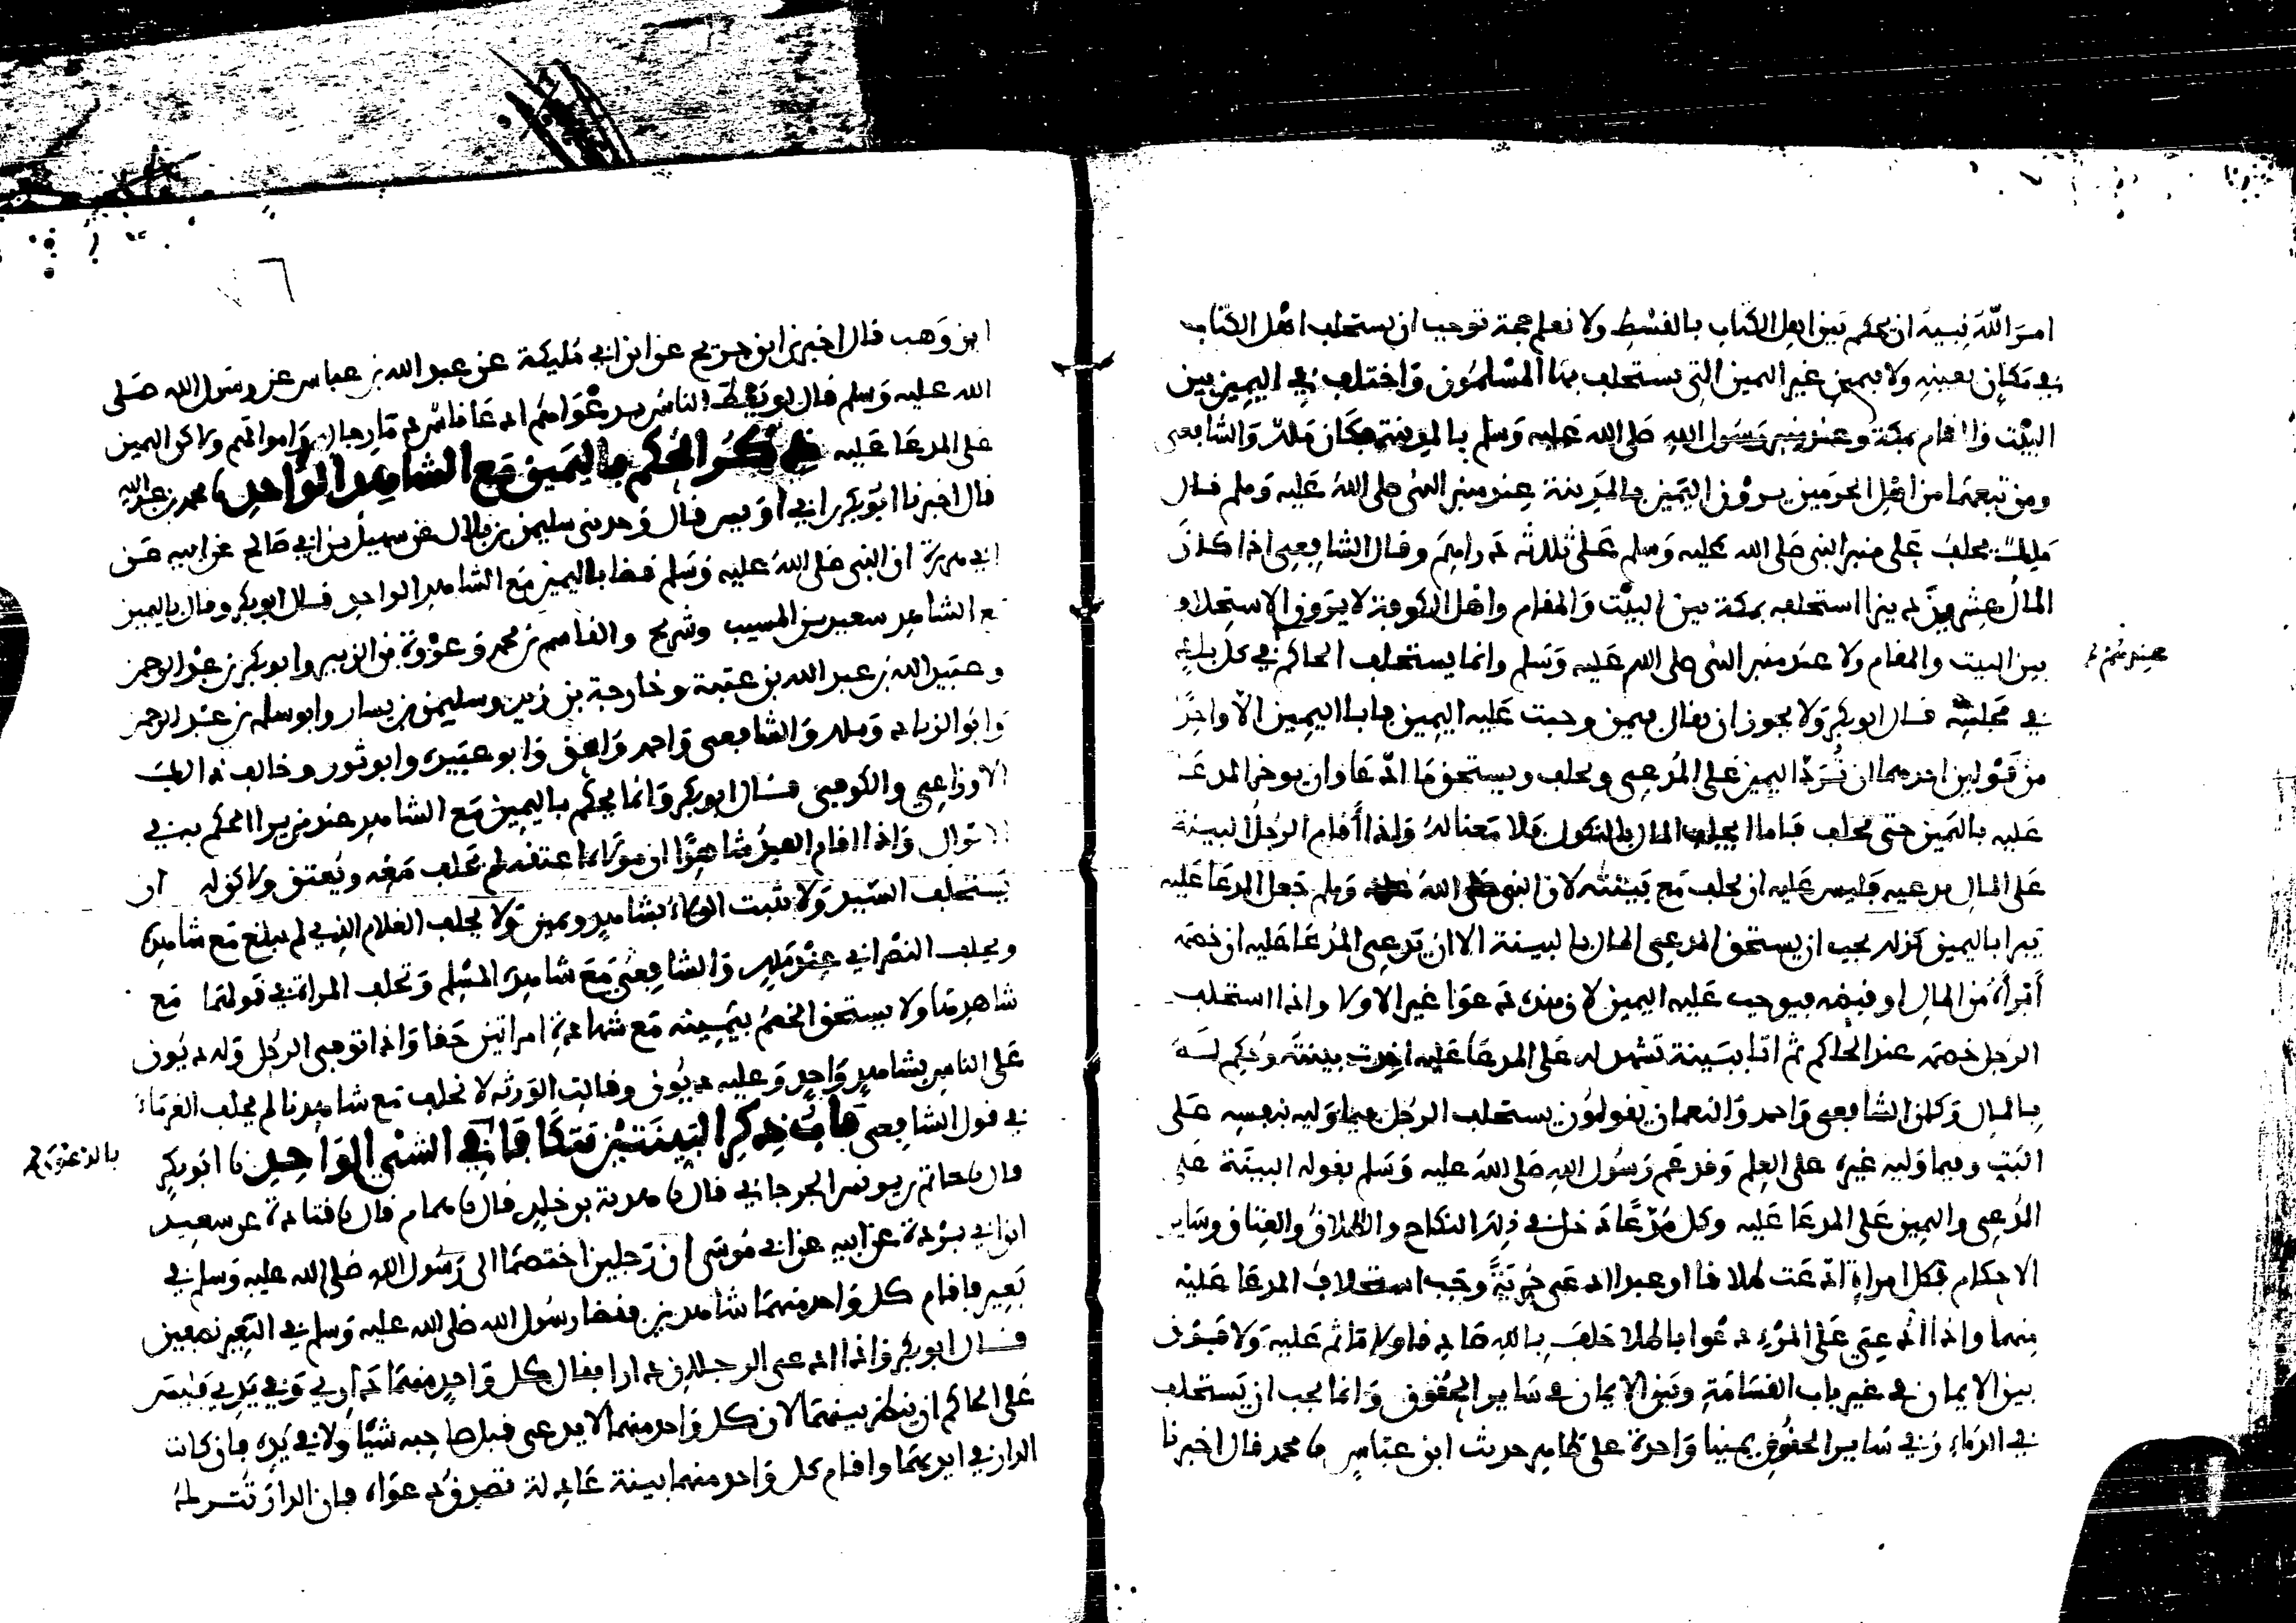 امر الله نبيه ان يحكم بين اهل الكتاب بالقسط ولا نعلم حجة توجب ان يستحلف اهل الكتاب
في مكان بعينه ولا بيمين غير اليمين التي يستحلف بها المسلمون واختلف في اليمين بين
البيت والمقام بمكة وعند منبر رسول الله صلى الله عليه وسلم بالمدينة فكان ملك والشافعي
ومن تبعهما من اهل الحرمين يرون اليمين بالمدينة عند منبر النبي صلى الله عليه وسلم قال
ملك يحلف على منبر النبي صلى الله عليه وسلم على ثلاثة دراهم وقال الشافعي اذا كان
المال عشرين دينارا استحلفه بمكة بين البيت والمقام واهل الكوفة لا يرون الاستحلاف
بين البيت والمقام ولا عند منبر النبي صلى الله عليه وسلم وانما يستحلف الحاكم في كل بلد
في مجلسه قال ابو بكر ولا يجوز ان يقال لمن وجبت عليه اليمين فابا اليمين الا واحد
من قولين احدهما ان ترد اليمين على المدعي ويحلف ويستحق ما ادعا وان يوخذ المدعا
عليه باليمين حتى يحلف فاما المال بالنكول فلا معنا له واذا اقام الرجل البينة
على المال يدعيه فليس عليه ان يحلف مع بينته لان النبي صلى الله عليه وسلم جعل المدعا عليه
يبرا باليمين كذلك يجب ان يستحق المدعي المال بالبينة الا ان يدعي المدعا عليه ان خصمه
أبرأه من المال او قبضه فيوجب عليه اليمين لان هذه دعوا غير الاولا واذا استحلف
الرجل خصمه عند الحاكم ثم اتا ببينة تشهد له على المدعا عليه اخذت بينته وحكم له
بالمال وكان الشافعي واحمد والنعمان يقولون يستحلف الرجل فيما وليه بنفسه على
البت وفيما وليه غيره على العلم وقد عم رسول الله صلى الله عليه وسلم بقوله البينة على
المدعي واليمين على المدعا عليه وكل مدعا دخل في ذلك النكاح والطلاق والعتاق وساير
الاحكام فكل امراة ادعت طلاقا او عبد ادعى حرية وجب استحلاف المدعا عليه
منهما واذا ادعي على المرء دعوا باطلا حلف بالله صادقا ولا ماثم عليه ولا فرق
بين الايمان في غير باب القسامة وبين الايمان في ساير الحقوق وانما يجب ان يستحلف
في الدماء وفي ساير الحقوق يمينا واحدة على ظاهر حديث ابن عباس نا محمد قال اخبرنا
ابن وهب قال اخبرني ابن جريج عن ابن ابي مليكة عن عبد الله بن عباس عن رسول الله صلى
الله عليه وسلم قال لو يعطى الناس بدعواهم ادعا ناس دماء رجال واموالهم ولاكن اليمين
على المدعا عليه ذكر الحكم باليمين مع الشاهد الواحد نا محمد بن عبد الله
قال اخبرنا ابو بكر بن ابي اويس قال وحدثني سليمن بن بلال عن سهيل بن ابي صالح عن ابيه عن
ابي هريرة ان النبي صلى الله عليه وسلم قضا باليمين مع الشاهد الواحد قال ابو بكر وقال باليمين
مع الشاهد سعيد بن المسيب وشريح والقاسم بن محمد وعروة بن الزبير وابو بكر بن عبد الرحمن
وعبيد الله بن عبد الله بن عتبة وخارجة بن زيد وسليمن بن يسار وابو سلمة بن عبد الرحمن
وابو الزناد وملك والشافعي واحمد واسحق وابو عبيد وابو ثور وخالف ذلك
الاوزاعي والكوفي قال ابو بكر وانما يحكم باليمين مع الشاهد عند من يرا الحكم به في
الاموال واذا اقام العبد شاهدا ان مولاه اعتقه لم يحلف معه ويعتق ولاكن له ان
يستحلف السيد ولا يثبت الولاء بشاهد ويمين ولا يحلف الغلام الذي لم يبلغ مع شاهده
ويحلف النصراني عند ملك والشافعي مع شاهده المسلم وتحلف المراة في قولهما مع
شاهدها ولا يستحق الخصم بيمينه مع شهادة امراتين حقا واذا توفي الرجل وله ديون
على الناس بشاهد واحد وعليه ديون وقالت الورثة لا نحلف مع شاهدنا لم يحلف الغرماء
في قول الشافعي باب ذكر البينتين تتكافا في الشي الواحد نا ابو بكر
قال نا حاتم بن يونس الجرجاني قال نا هدبة بن خلد قال نا همام قال نا قتادة عن سعيد
ابن ابي بردة عن ابيه عن ابي موسى ان رجلين اختصما الى رسول الله صلى الله عليه وسلم في
بعير فاقام كل واحد منهما شاهدين فقضا رسول الله صلى الله عليه وسلم في البعير نصفين
قال ابو بكر واذا ادعى الرجلان دارا فقال كل واحد منهما داري وفي يدي فليس
على الحاكم ان ينظر بينهما لان كل واحد منهما لا يدعي قبل صاحبه شيا ولا في يده فان كانت
الدار في ايديهما واقام كل واحد منهما بينة عادلة تصدق دعواه فان الدار تترك